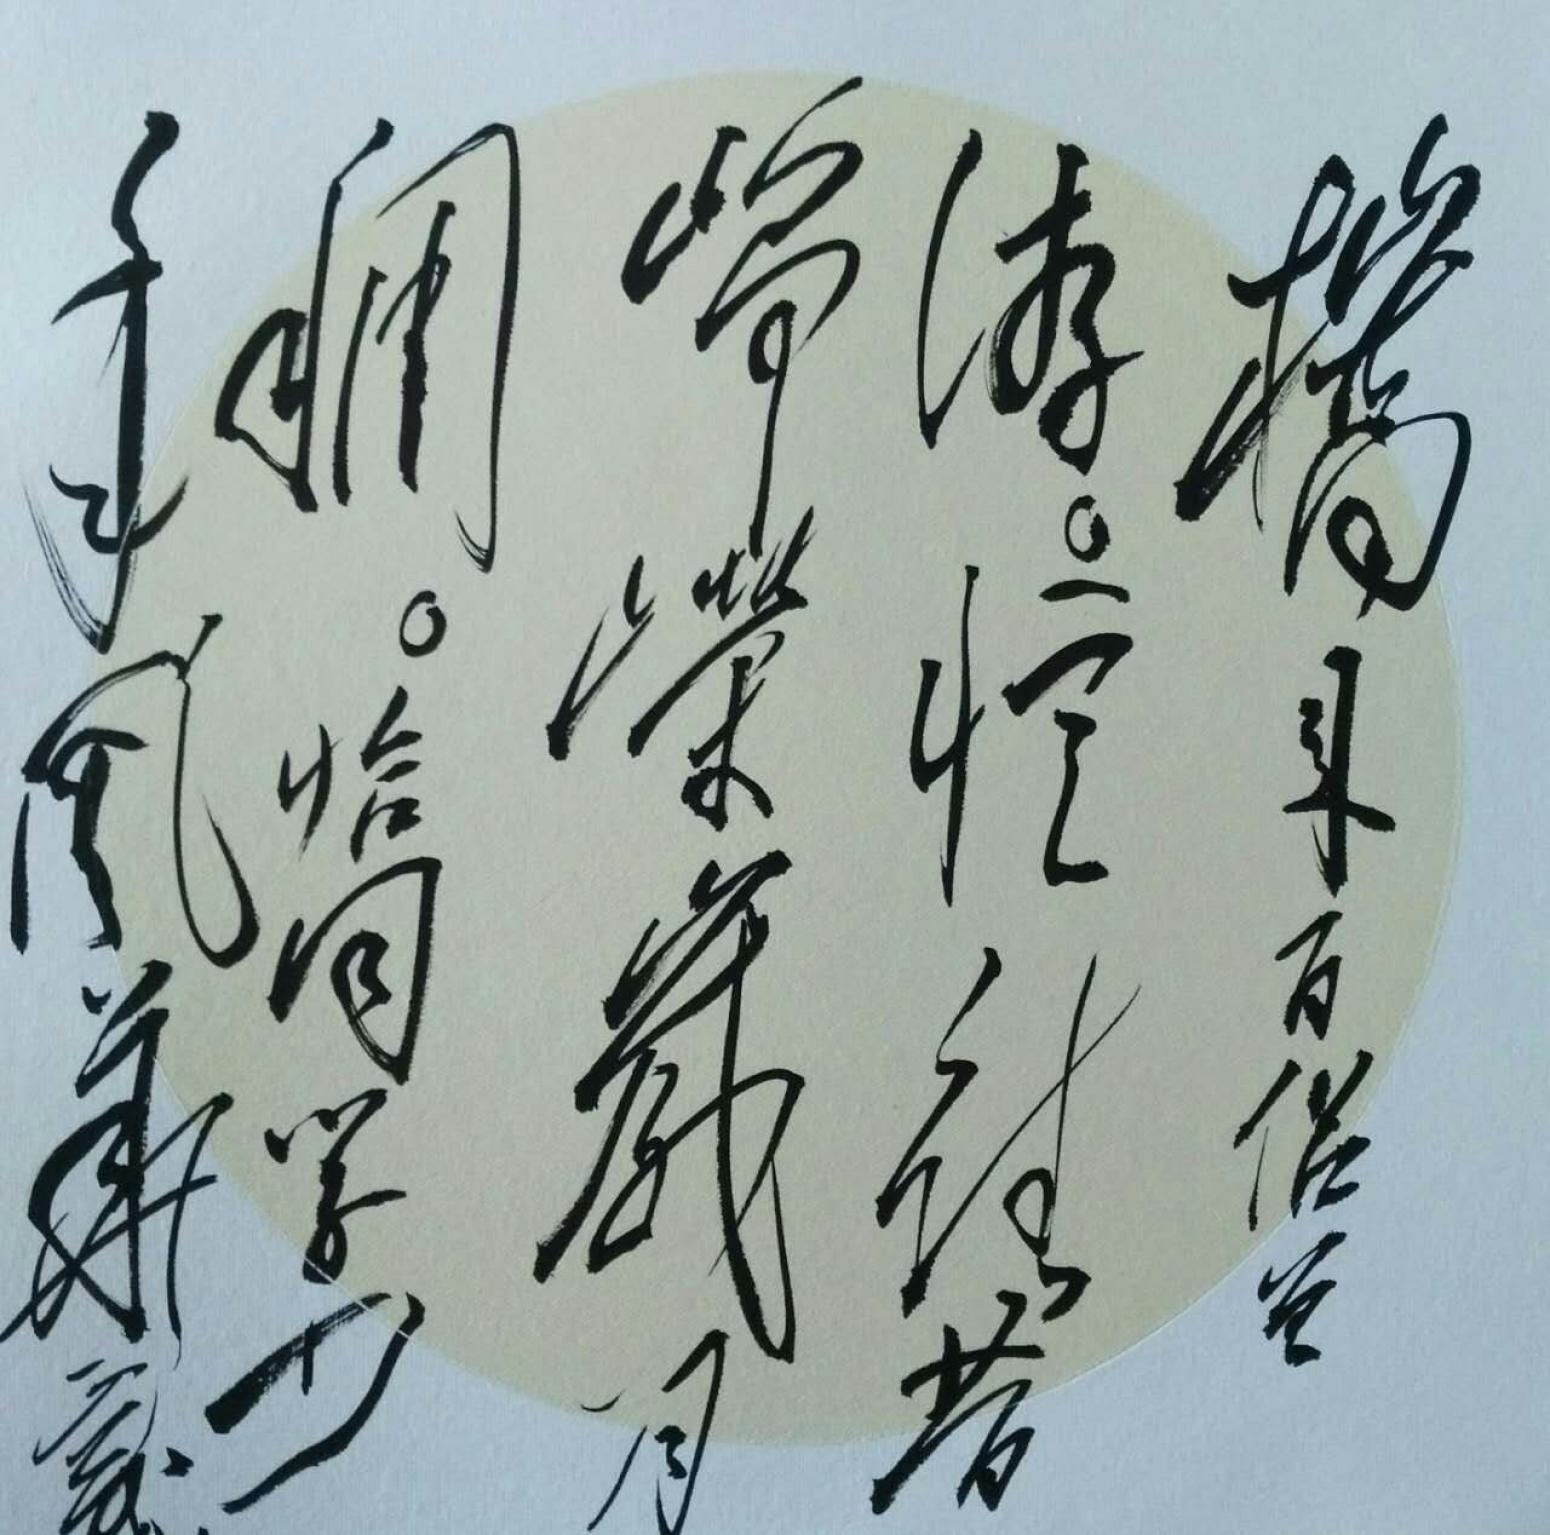 携来百侣曾
游。忆往昔
峥嵘岁月
稠。恰同学少
年风华